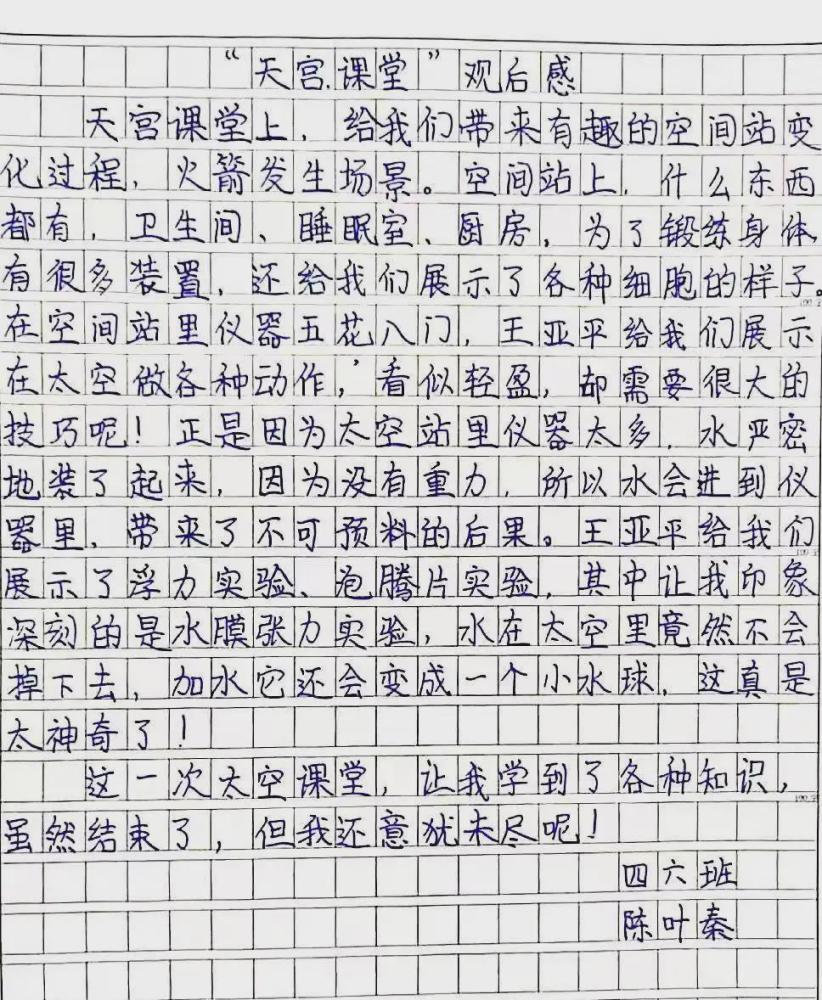 “天宫课堂”观后感
天宫课堂上，给我们带来有趣的空间站变
化过程，火箭发生场景。空间站上，什么东西
都有，卫生间、睡眠室、厨房，为了锻练身体
有很多装置，还给我们展示了各种细胞的样子。
在空间站里仪器五花八门，王亚平给我们展示
在太空做各种动作，看似轻盈，却需要很大的
技巧呢！正是因为太空站里仪器太多，水严密
地装了起来，因为没有重力，所以水会进到仪
器里，带来了不可预料的后果。王亚平给我们
展示了浮力实验、泡腾片实验，其中让我印象
深刻的是水膜张力实验，水在太空里竟然不会
掉下去，加水它还会变成一个小水球，这真是
太神奇了！
这一次太空课堂，让我学到了各种知识，
虽然结束了，但我还意犹未尽呢！
四六班
陈叶秦